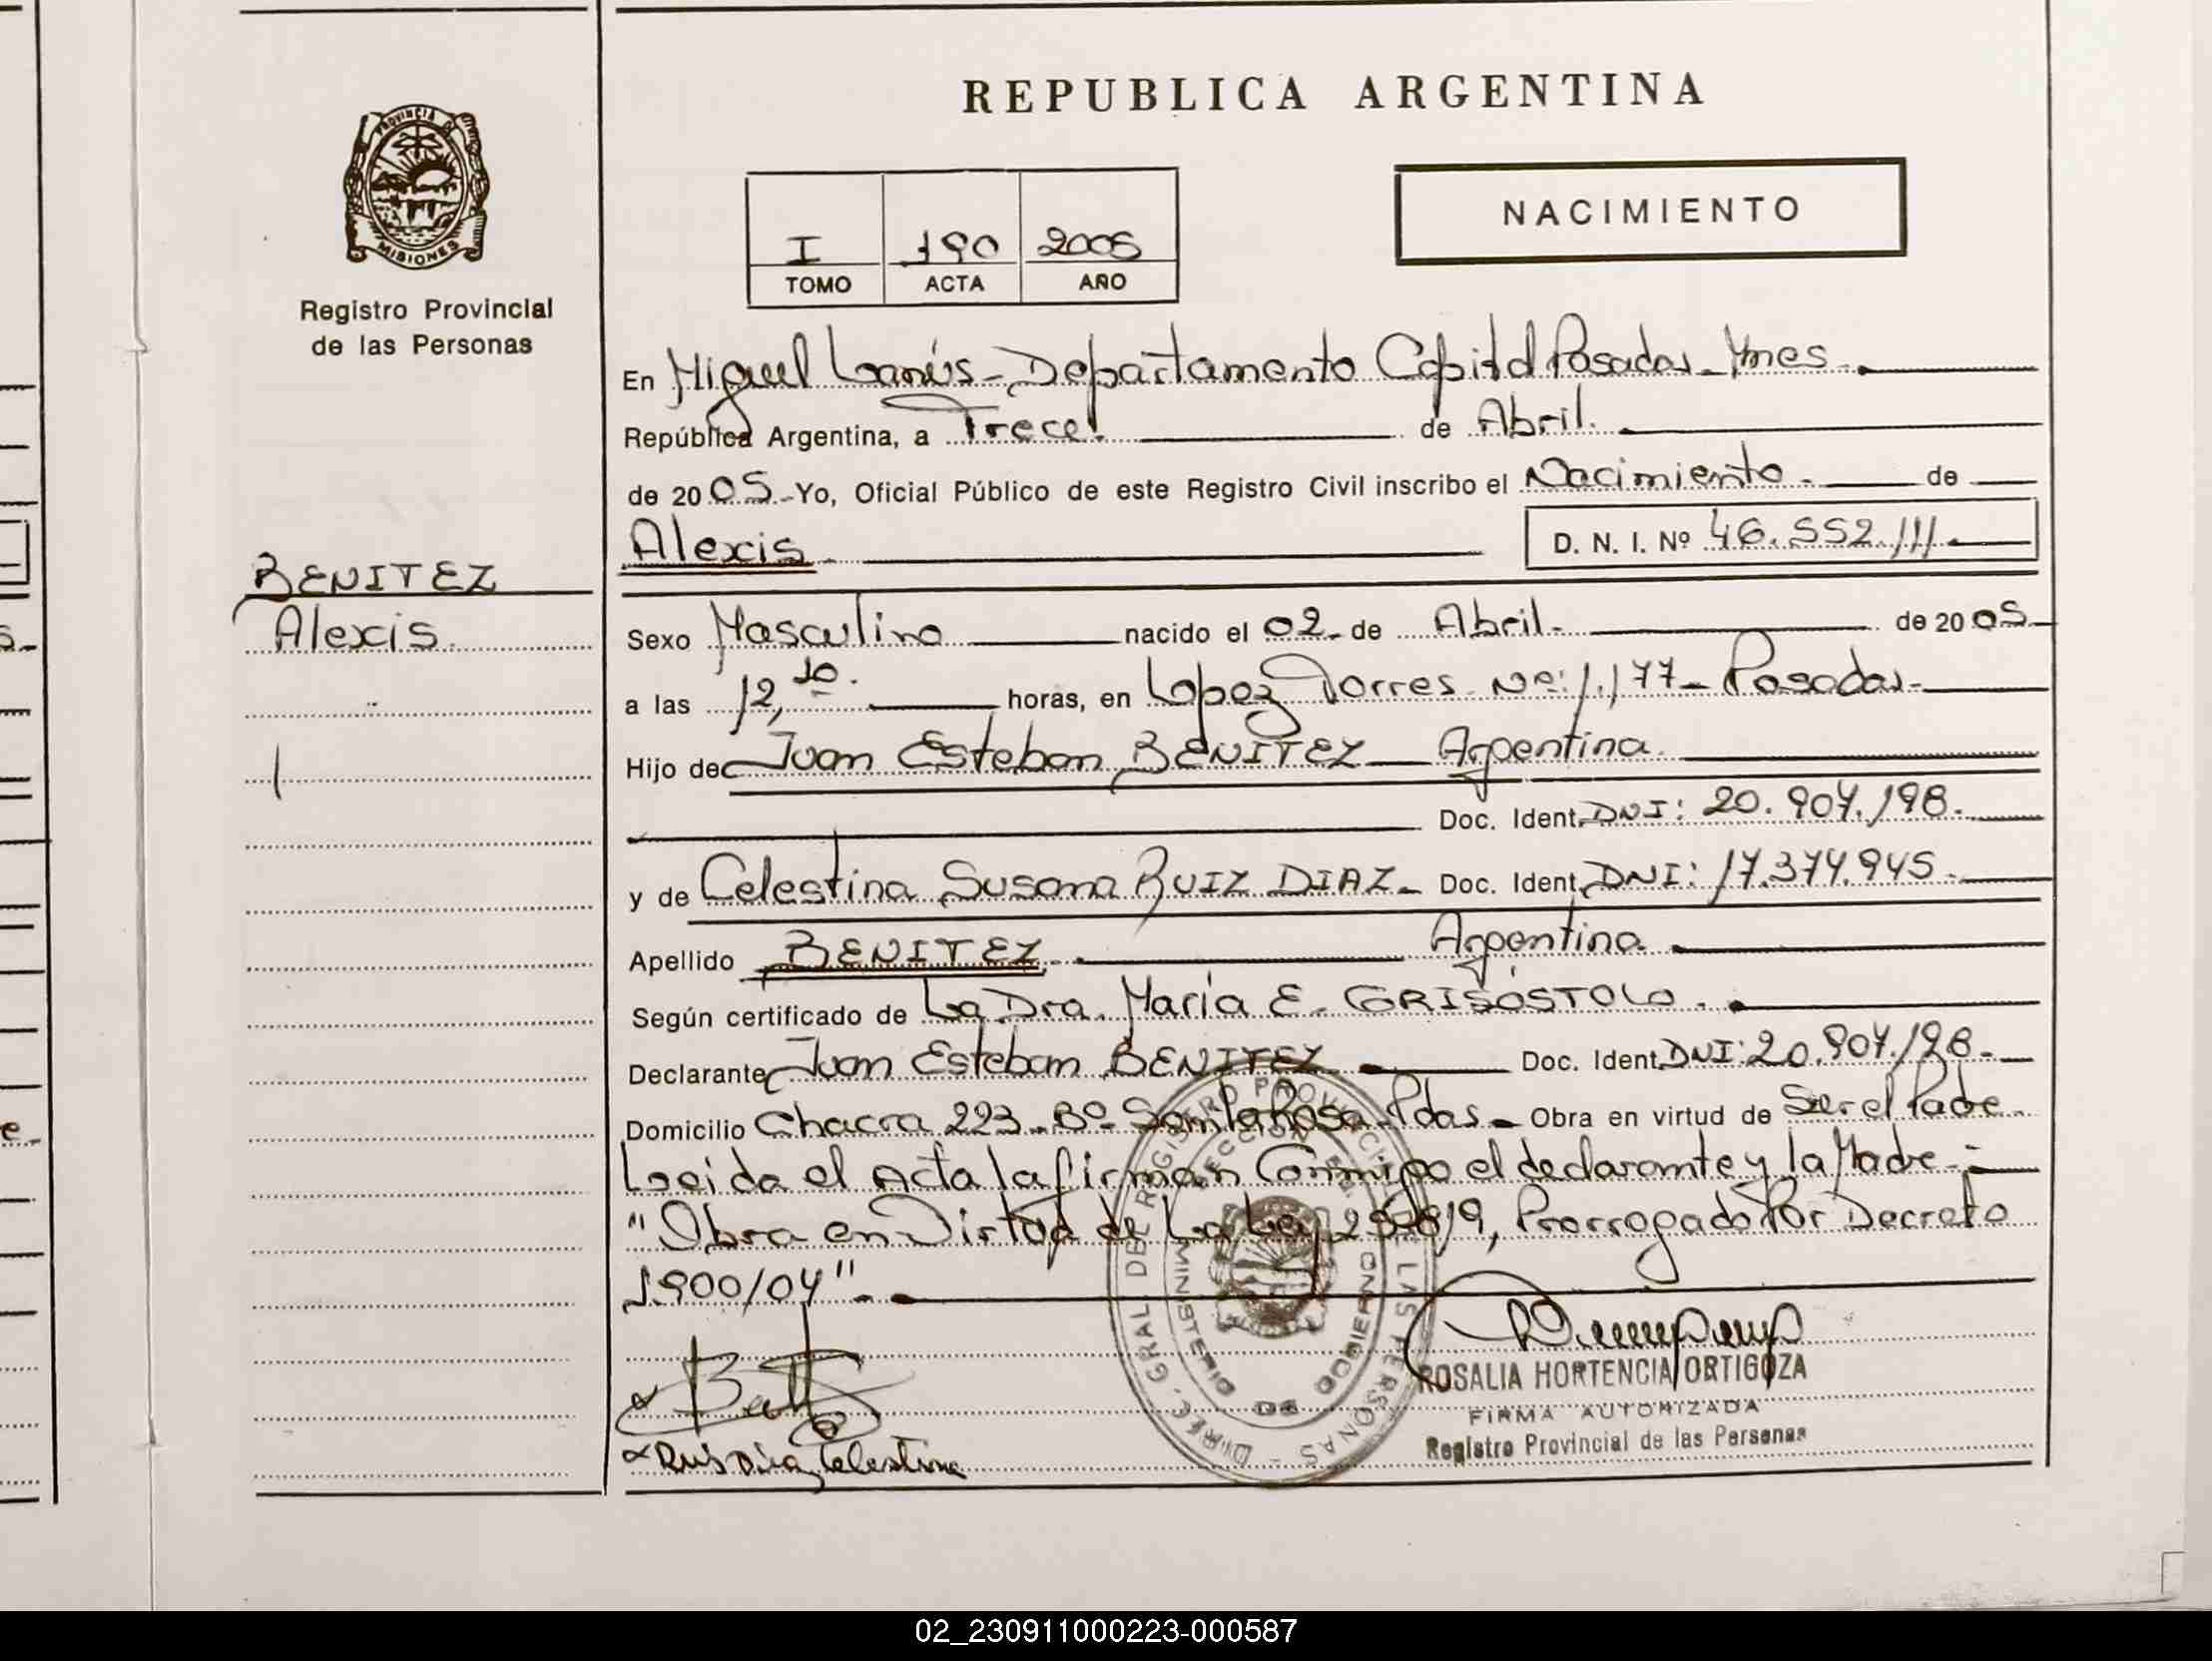 REPUBLICA ARGENTINA
PROVINCIA DE
MISIONES
Registro Provincial
de las Personas
NACIMIENTO
I 190 2005
TOMO ACTA AÑO
En Miguel Lanús - Departamento Capital Posadas - Mnes.
República Argentina, a Trece. de Abril.
de 20 05.- Yo, Oficial Público de este Registro Civil inscribo el Nacimiento. de
Alexis D. N. I. Nº 46.552.111.
BENITEZ
Alexis.
Sexo Masculino nacido el 02 de Abril. de 20 05
a las 12,10. horas, en Lopez Torres Nº: 1.177 - Posadas.
Hijo de Juan Esteban BENITEZ Argentina.
Doc. Ident. DNI: 20.907.198.
y de Celestina Susana RUIZ DIAZ - Doc. Ident. DNI: 17.374.945.
Apellido BENITEZ. Argentina.
Según certificado de La Dra. María E. GRISÓSTOLO.
Declarante Juan Esteban BENITEZ Doc. Ident. DNI: 20.907.198.
Domicilio Chacra 223 - Bº - Santa Rosa - Pdas - Obra en virtud de Ser el Padre.
Leida el Acta la firman Conmigo el declarante y la Madre -
"Obra en Virtud de La Ley 25.819, Prorrogado Por Decreto
1.900/04".
DIREC. GRAL. DEL REGISTRO PROVINCIAL DE LAS PERSONAS
MINISTERIO DE GOBIERNO
ROSALIA HORTENCIA ORTIGOZA
FIRMA AUTORIZADA
Registro Provincial de las Personas
Ruis Dias Celestina
02_230911000223-000587